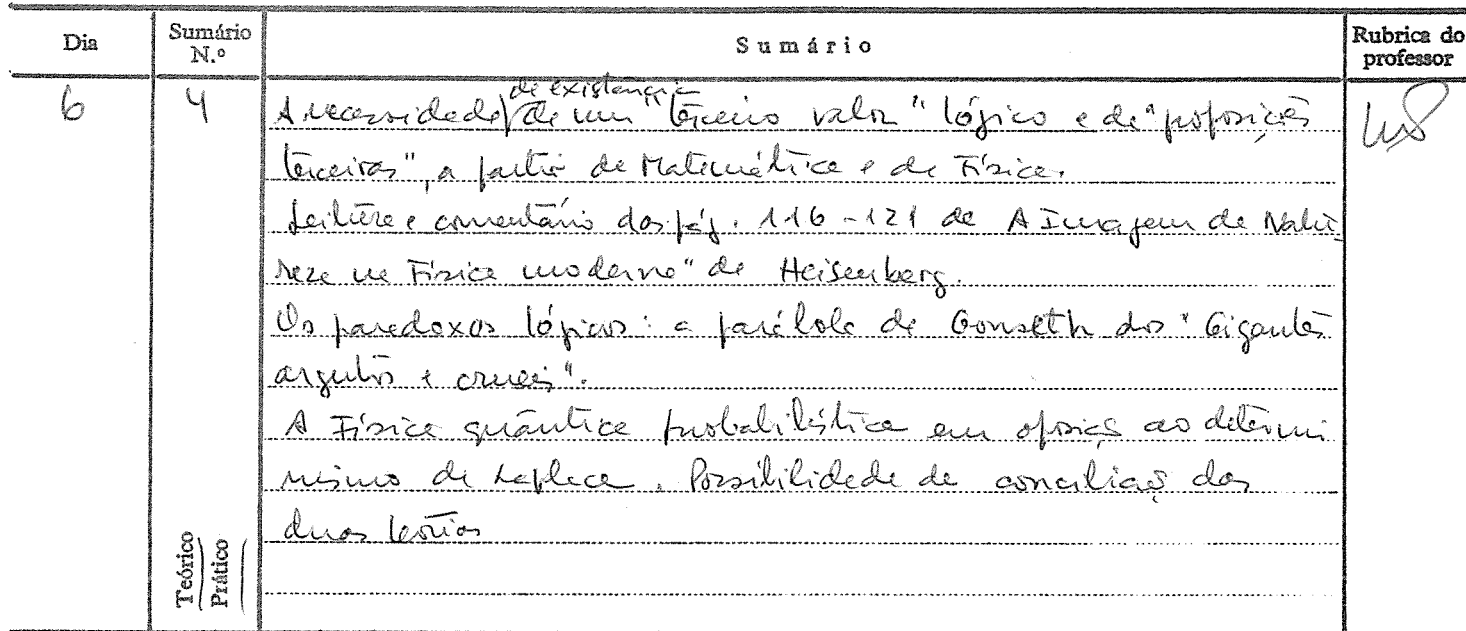 Dia Sumário N.º Sumário Rubrica do professor
6 4 A necessidade de existência de um "terceiro valor" lógico e de "proposições
terceiras", a partir da Matemática e da Física.
Leitura e comentário das pág. 116-121 de A Imagem da Natu-
reza na Física moderna" de Heisenberg.
Os paradoxos lógicos: a parábola de Gonseth dos "Gigantes
argutos e cruéis".
A Física quântica probabilística em oposição ao determi
nismo de Laplace. Possibilidade de conciliação das
duas teorias
Teórico
Prático